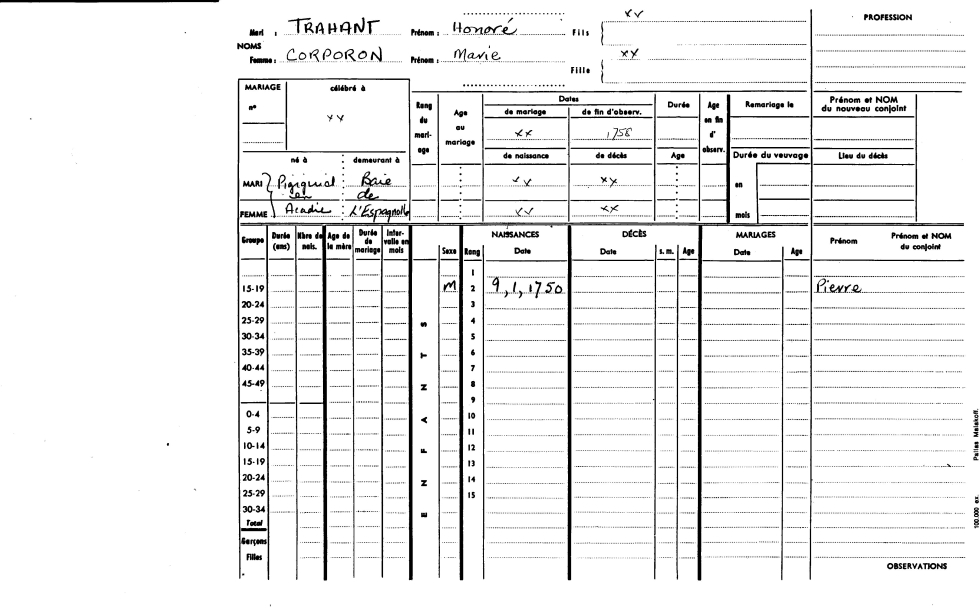 xx
PROFESSION
Mari : TRAHANT Prénom : Honoré Fils
NOMS
Femme : CORPORON Prénom : Marie xx
Fille
MARIAGE célébré à
n°
xx
Rang du mari- age
Age au mariage
Dates
de mariage de fin d'observ.
xx 1758
de naissance de décès
Durée
Age
Age en fin d' observ.
Remariage le
Durée du veuvage
en
mois
Prénom et NOM du nouveau conjoint
Lieu du décès
né à demeurant à
MARI en Baie de xx xx
FEMME Acadie L'Espagnolle xx xx
Groupe Durée (ans) Nbre de nais. Age de la mère Durée de mariage Inter- valle en mois
ENFANTS
Sexe Rang
NAISSANCES
Date
DÉCÈS
Date s. m. Age
MARIAGES
Date Age
Prénom Prénom et NOM du conjoint
1
15-19 M 2 9,1,1750 Pierre
20-24 3
25-29 4
30-34 5
35-39 6
40-44 7
45-49 8
9
0-4 10
5-9 11
10-14 12
15-19 13
20-24 14
25-29 15
30-34
Total
Garçons
Filles
OBSERVATIONS
100.000 ex.